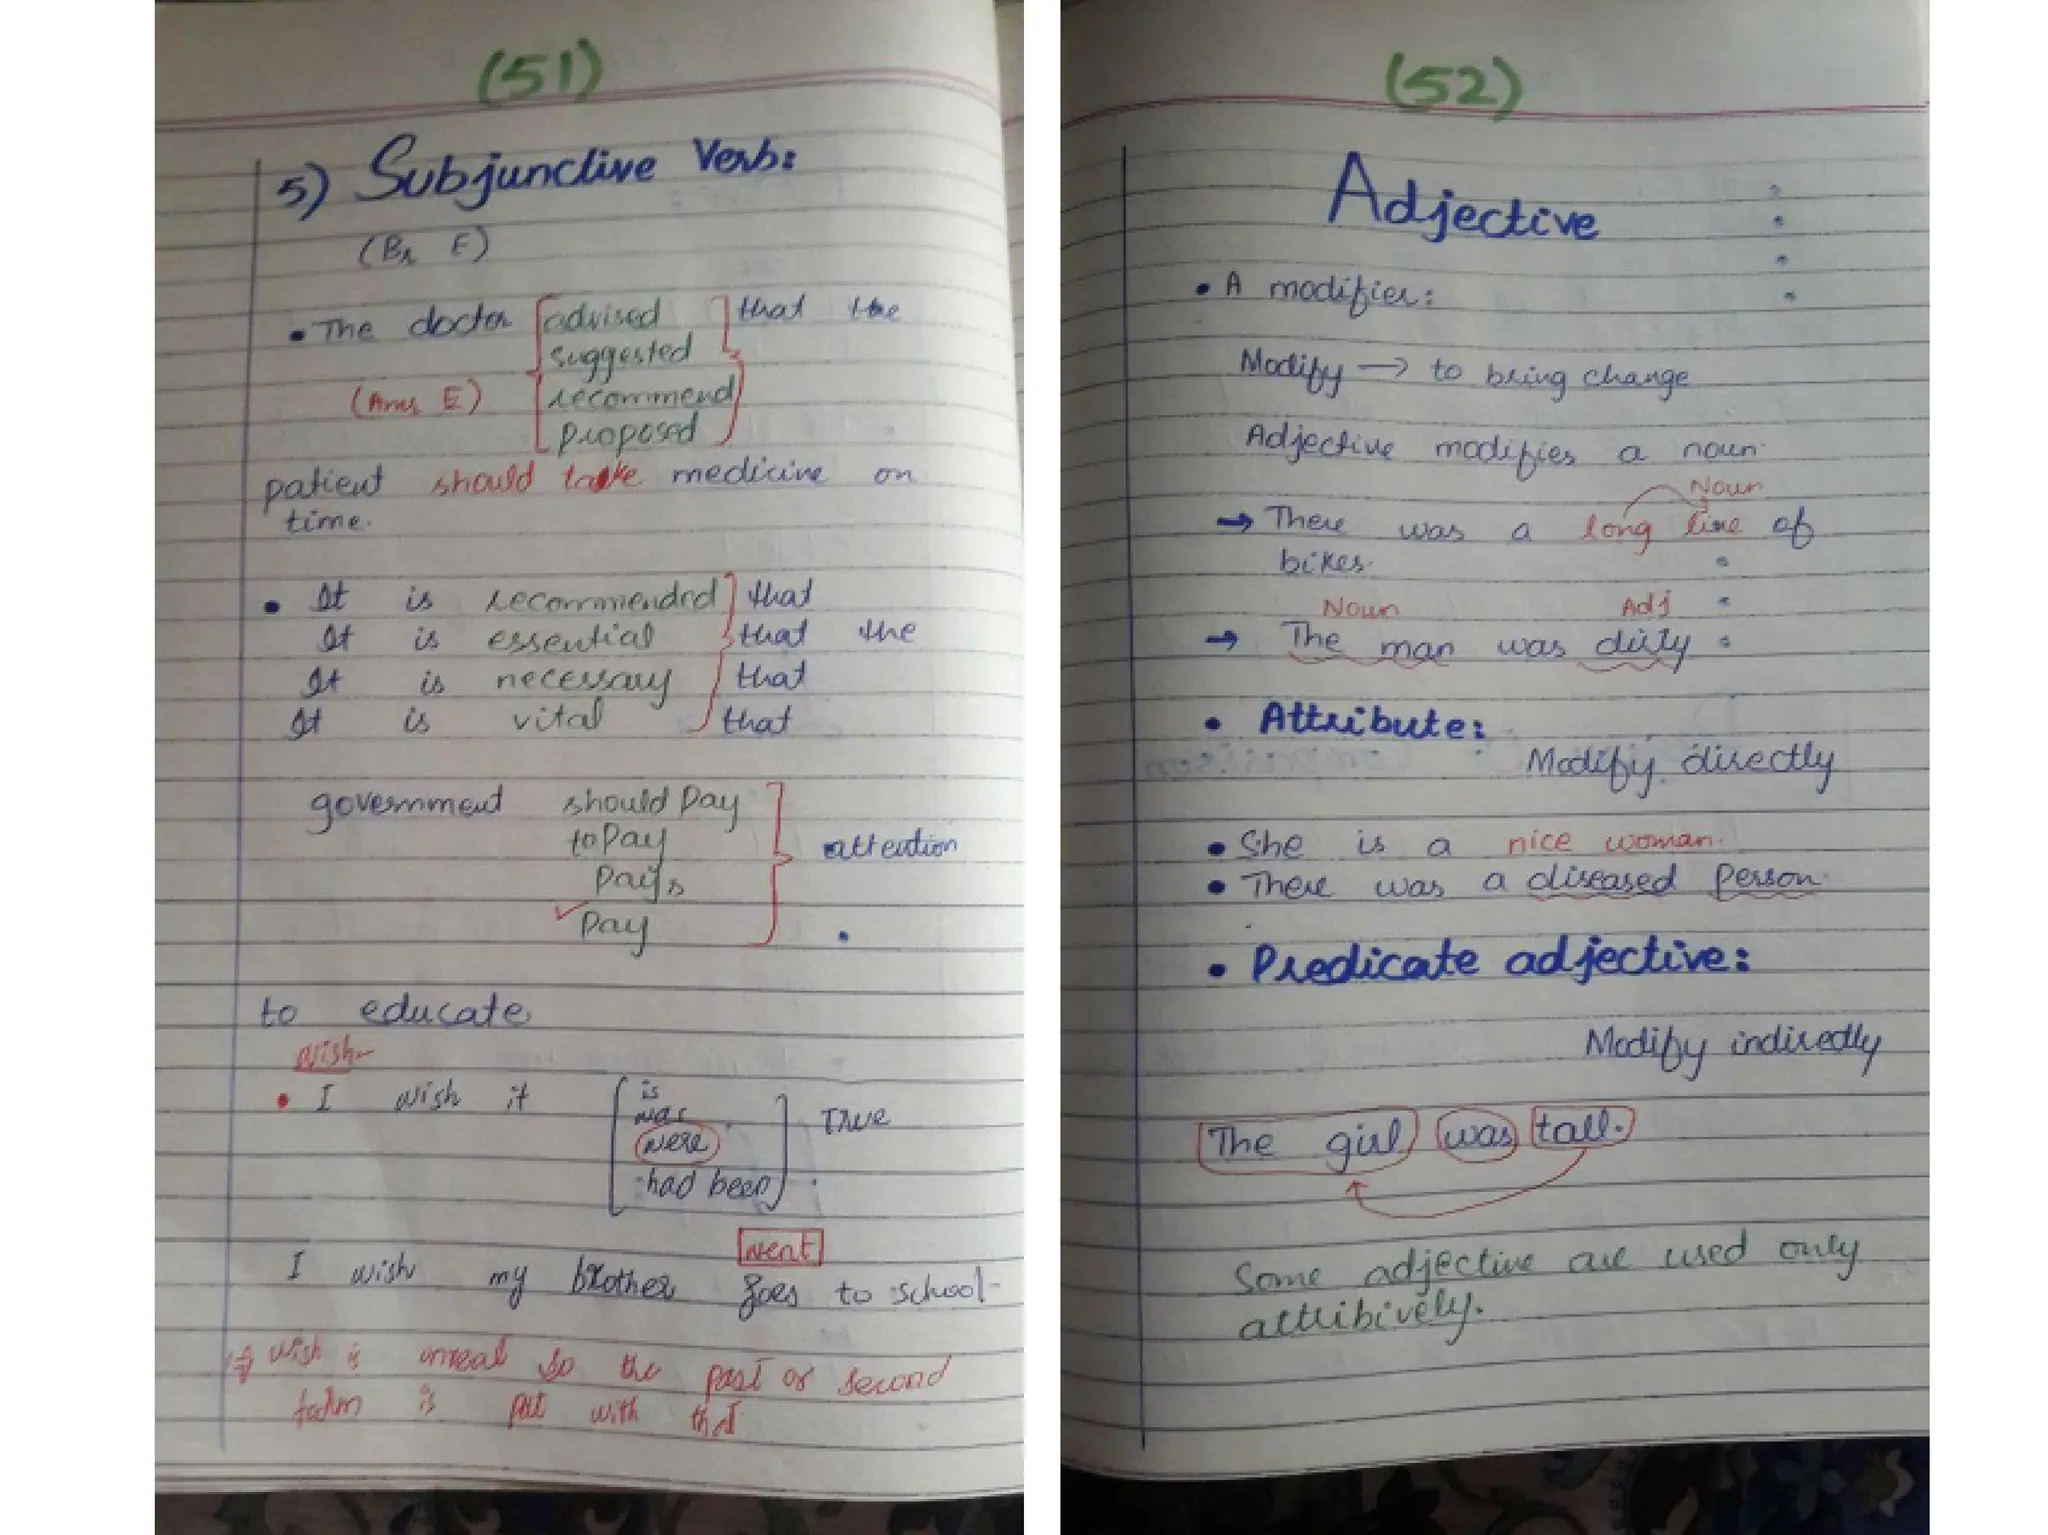 (51)
5) Subjunctive Verb:
(Br E)
• The doctor [advised] that the
suggested
(Ame E) recommend
proposed
patient should take medicine on
time.
• It is recommended] that
It is essential that the
It is necessary that
It is vital that
government should Pay
to Pay
attention
Pays
✓ Pay
to educate
wish
• I wish it is True
was
were
had been
went
I wish my brother goes to school
wish is unreal so the past or second
form is put with that
(52)
Adjective
• A modifier:
Modify → to being change
Adjective modifies a noun.
Noun
→ There was a long line of
bikes.
Noun Adj
→ The man was dirty
• Attribute:
Modify directly
• She is a nice woman.
• There was a diseased Person.
• Predicate adjective:
Modify indirectly
The girl was tall.
Some adjective are used only
attribively.